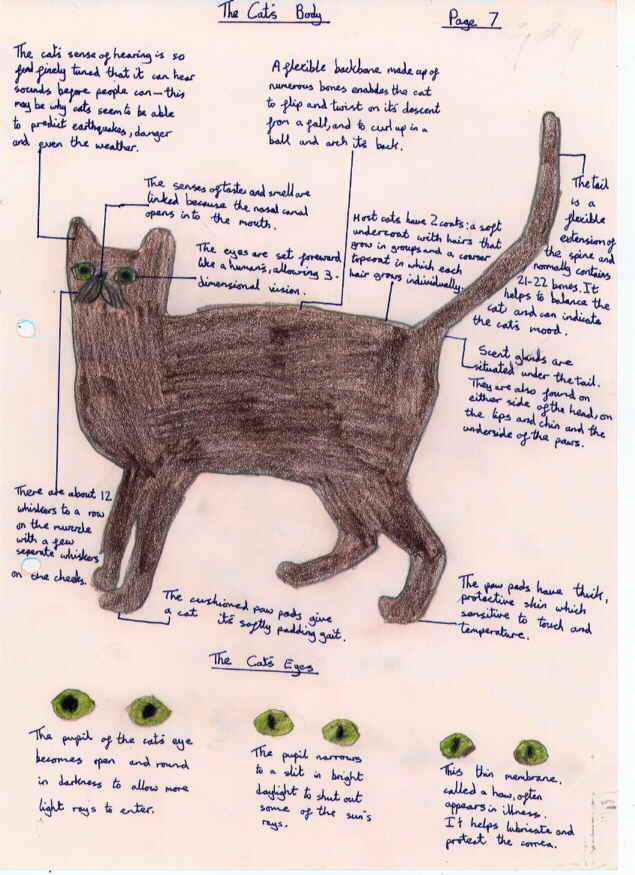 The Cat's Body
Page 7
The cat's sense of hearing is so
finely tuned that it can hear
sounds before people can - this
may be why cats seem to be able
to predict earthquakes, danger
and even the weather.
A flexible backbone made up of
numerous bones enables the cat
to flip and twist on it's descent
from a fall, and to curl up in a
ball and arch its back.
The senses of taste and smell are
linked because the nasal canal
opens into the mouth.
The eyes are set forward
like a human's, allowing 3-
dimensional vision.
Most cats have 2 coats: a soft
undercoat with hairs that
grow in groups and a coarser
topcoat in which each
hair grows individually.
The tail
is a
flexible
extension of
the spine and
normally contains
21-22 bones. It
helps to balance the
cat and can indicate
the cat's mood.
Scent glands are
situated under the tail.
They are also found on
either side of the head, on
the lips and chin and the
underside of the paws.
There are about 12
whiskers to a row
on the muzzle
with a few
seperate whiskers
on the cheeks.
The cushioned paw pads give
a cat it's softly padding gait.
The paw pads have thick,
protective skin which
sensitive to touch and
temperature.
The Cat's Eyes
The pupil of the cat's eye
becomes open and round
in darkness to allow more
light rays to enter.
The pupil narrows
to a slit in bright
daylight to shut out
some of the sun's
rays.
This thin membrane,
called a haw, often
appears in illness.
It helps lubricate and
protect the cornea.